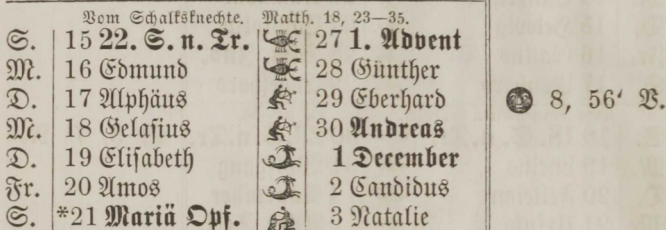 Vom Schalksknechte. Matth. 18, 23—35.
S. 15 22. S. n. Tr. 27 1. Advent
M. 16 Edmund 28 Günther
D. 17 Alphäus 29 Eberhard 8, 56' V.
M. 18 Gelasius 30 Andreas
D. 19 Elisabeth 1 December
Fr. 20 Amos 2 Candidus
S. *21 Mariä Opf. 3 Natalie